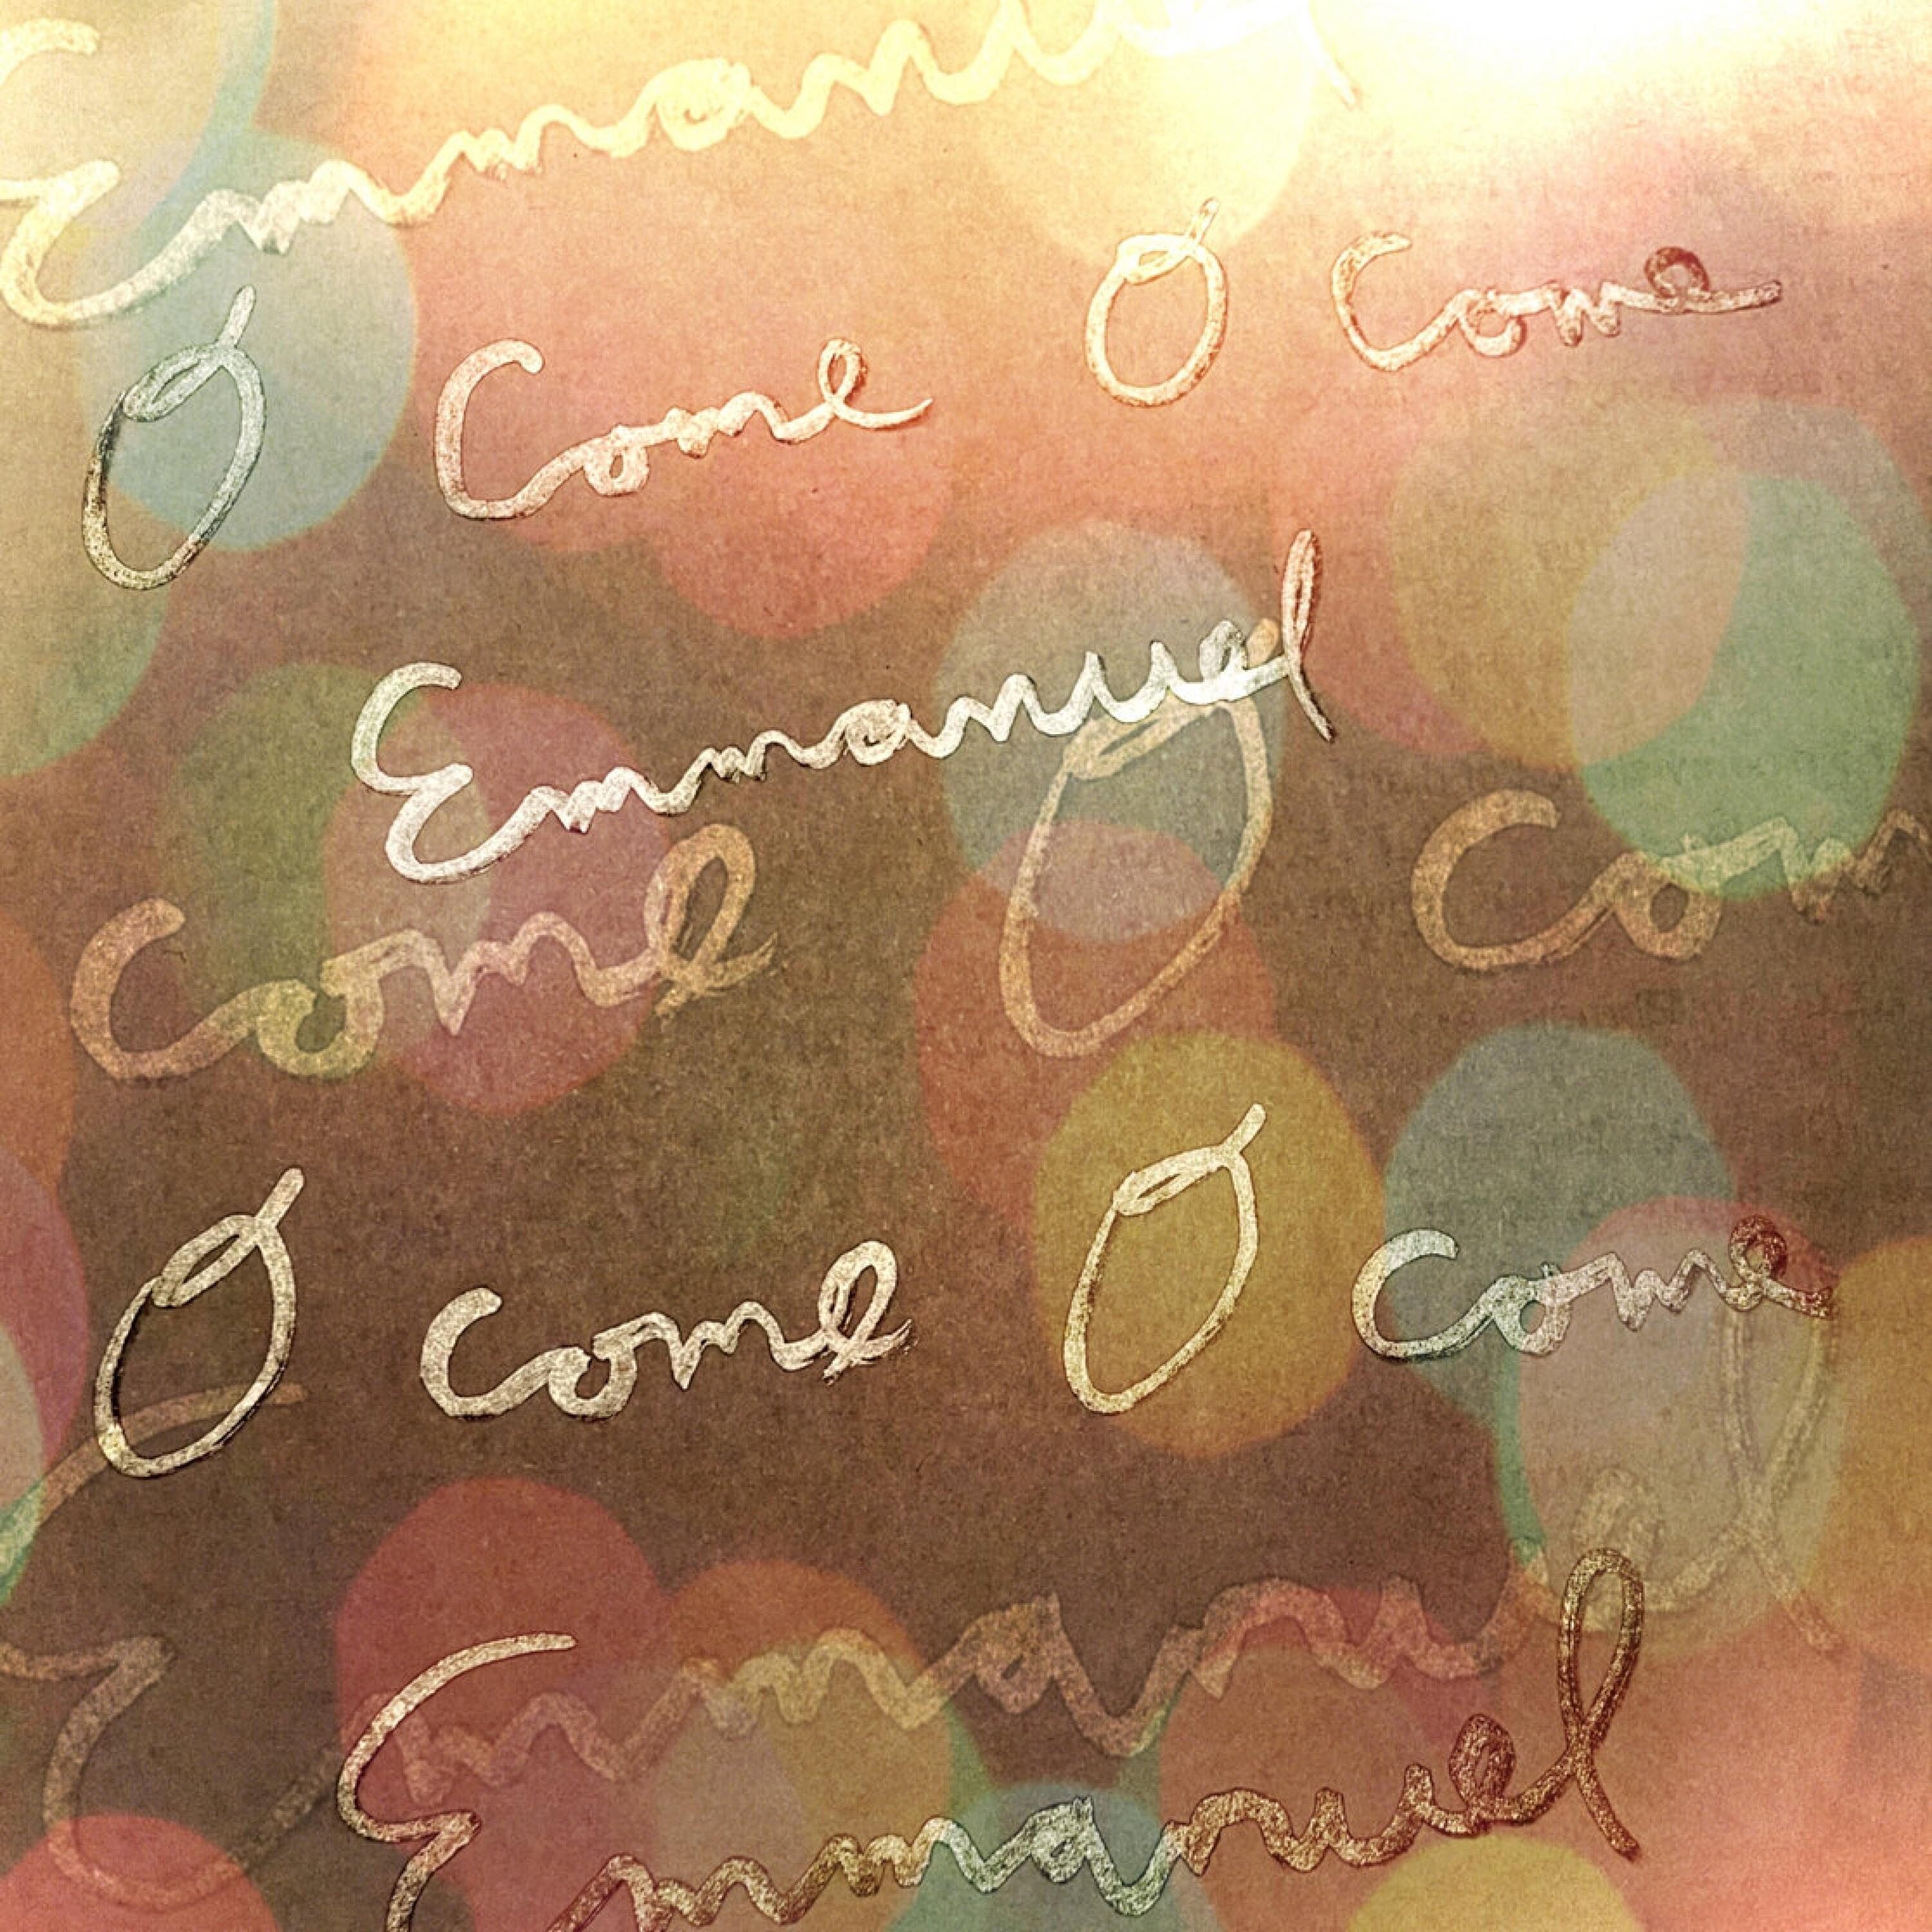 Emmanuel
O Come O Come
Emmanuel
Come O Com
O come O come
Emmanuel
Emmanuel